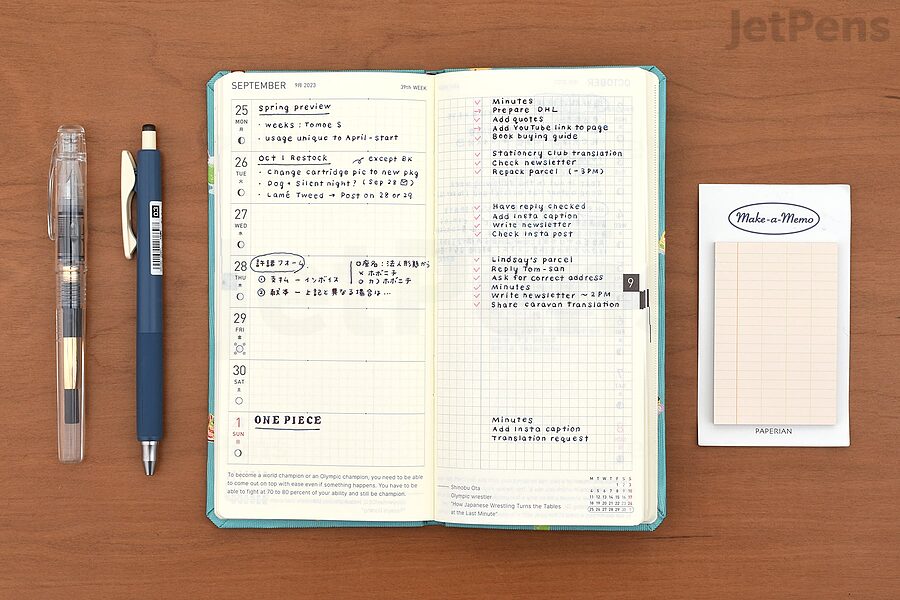 JetPens
SEPTEMBER 9月 2023
39th WEEK
25 MON 月
Spring preview
· weeks : Tomoe S
· usage unique to April-start
26 TUE 火
Oct 1 Restock except BK
· Change cartridge pic to new pkg
· Dog + Silent night? (Sep 28
· Lamé Tweed → Post on 28 or 29
27 WED 水
28 THU 木
許諾フォーム
① 支払 − インボイス
② 献本 − 上記と異なる場合は...
○座名:法人形態から
× ホボニチ
○ カ) ホボニチ
29 FRI 金
30 SAT 土
1 SUN 日
ONE PIECE
To become a world champion or an Olympic champion, you need to be able
to come out on top with ease even if something happens. You have to be
able to fight at 70 to 80 percent of your ability and still be champion.
Minutes
Prepare DHL
Add quotes
Add YouTube link to page
Book buying guide
Stationery Club translation
Check newsletter
Repack parcel (-3PM)
Have reply checked
Add insta caption
Write newsletter
Check insta post
Lindsay's parcel
Reply Tom-san
Ask for correct address
Minutes
Write newsletter ~2PM
Share caravan translation
9
Minutes
Add insta caption
Translation request
Shinobu Ota
Olympic wrestler
"How Japanese Wrestling Turns the Tables
at the Last Minute"
M T W T F S S
1 2 3
4 5 6 7 8 9 10
11 12 13 14 15 16 17
18 19 20 21 22 23 24
25 26 27 28 29 30 1
Make-a-Memo
PAPERIAN